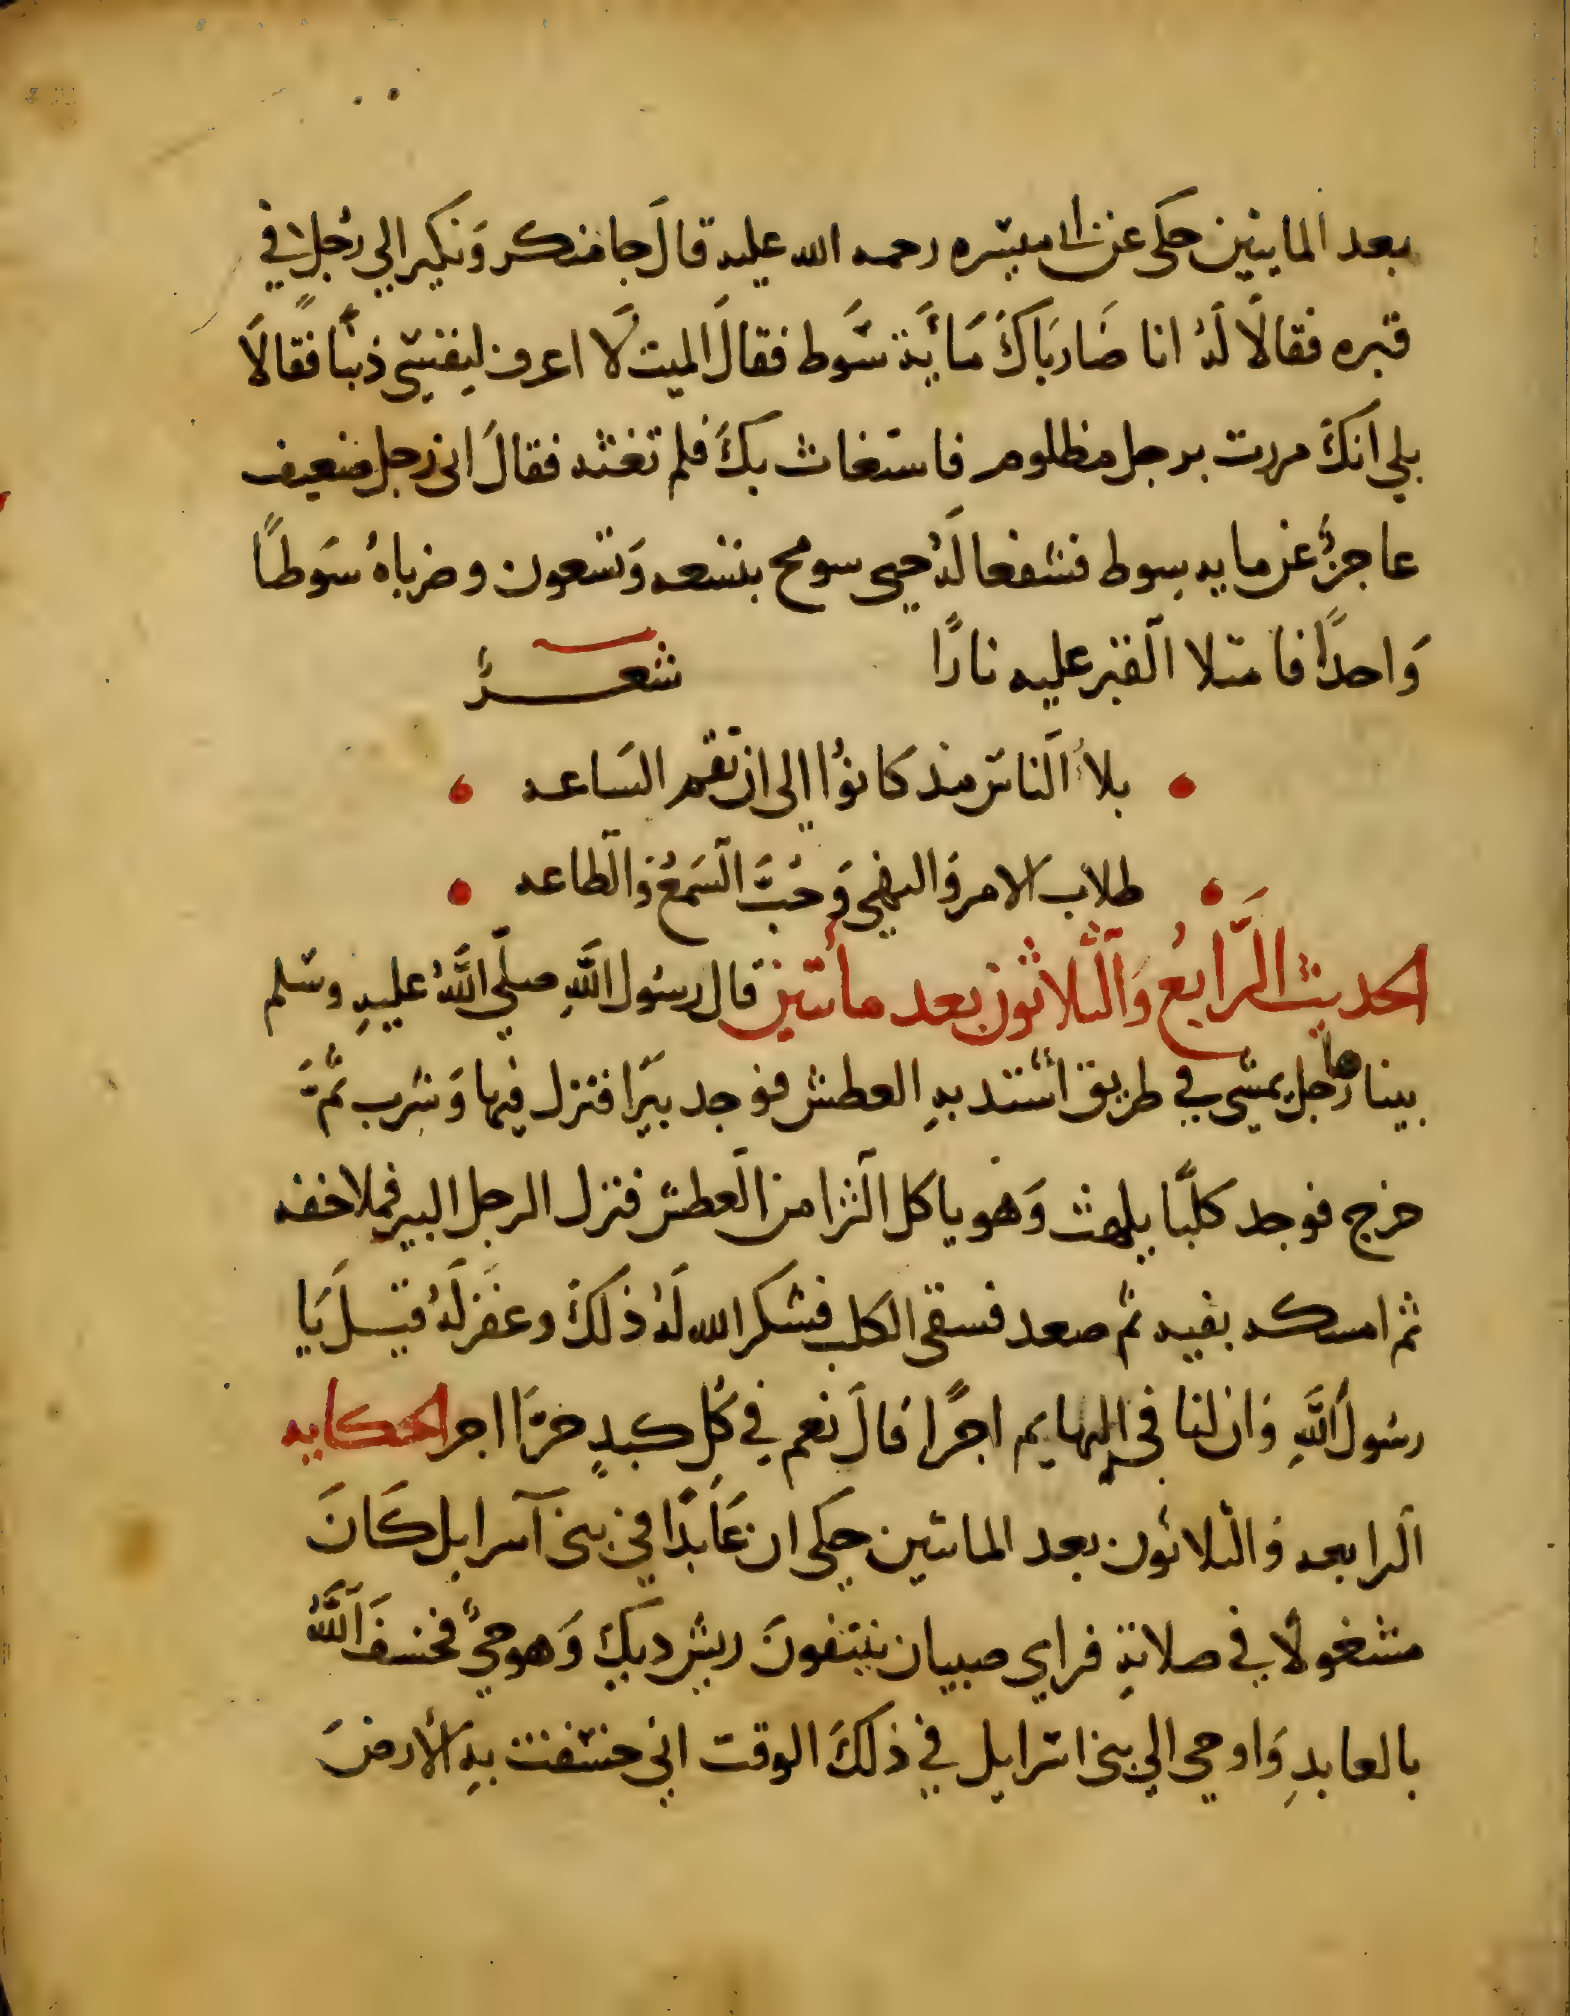 بعد المايتين حكي عن ابي ميسره رحمه الله عليه قالَ جا منكر وَنكير الي رجُل في
قبره فقالَا لَهُ انا ضَاربَاكَ مَايَة سَوط فقالَ الميت لَا اعرف لنفسي ذنبًا فقالَا
بلي انكَ مررت برجل مظلوم فاستغاث بكَ فلم تغثه فقالَ اني رجل ضعيف
عاجزٌ عن مايه سوط فشفعا لَهُ حتي سومح بتسعه وَتسعون وضرباهُ سَوطًا
وَاحدًا فامتلا القبر عليه نارًا شعــرٌ
بلاُ الَناس مذ كانوُا الي ان تقم السَاعه
طلاب الامر وَالنهي وَحُبَّ السَمعُ وَالطاعه
الحديث الرَّابعُ وَالثَّلاثون بعد مأتين قال رسُول اللَّهِ صلّي اللَّهُ عليهِ وسَلم
بينا رَجل يمشي في طريق اشتد بهِ العطش فوجد بيرًا فنزل فيها وَشرب ثُمَّ
خرج فوجد كلبًا يلهث وَهو ياكل الثرا من العطش فنزل الرجل البير فملا خفه
ثم امسكه بفيه ثم صعد فسقي الكلب فشكر الله لَهُ ذلكَ وغفر لَهُ قيــلَ يَا
رسُول اللَّهِ وَان لنا في البهايم اجرًا قالَ نعم في كُلِ كبدٍ حرَّا اجر الحكايه
الرابعه وَالثلاثون بعد الماتين حكي ان عَابدًا في بني اسرايل كَانَ
مشغولًا في صلاتهِ فراي صبيان ينتفونَ ريش ديكٍ وَهو حيٌ فخسفَ اللَّهُ
بالعابدِ وَاوحي الي بني اسرايل في ذلكَ الوقت اني خسَفت بهِ الارضَ